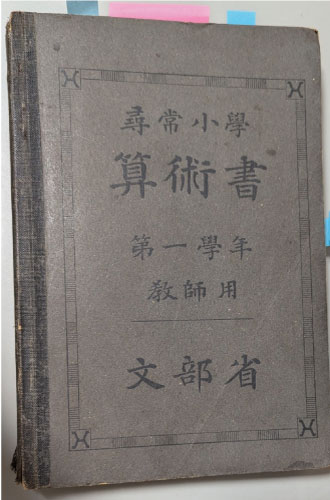 尋常小學
算術書
第一學年
教師用
文部省